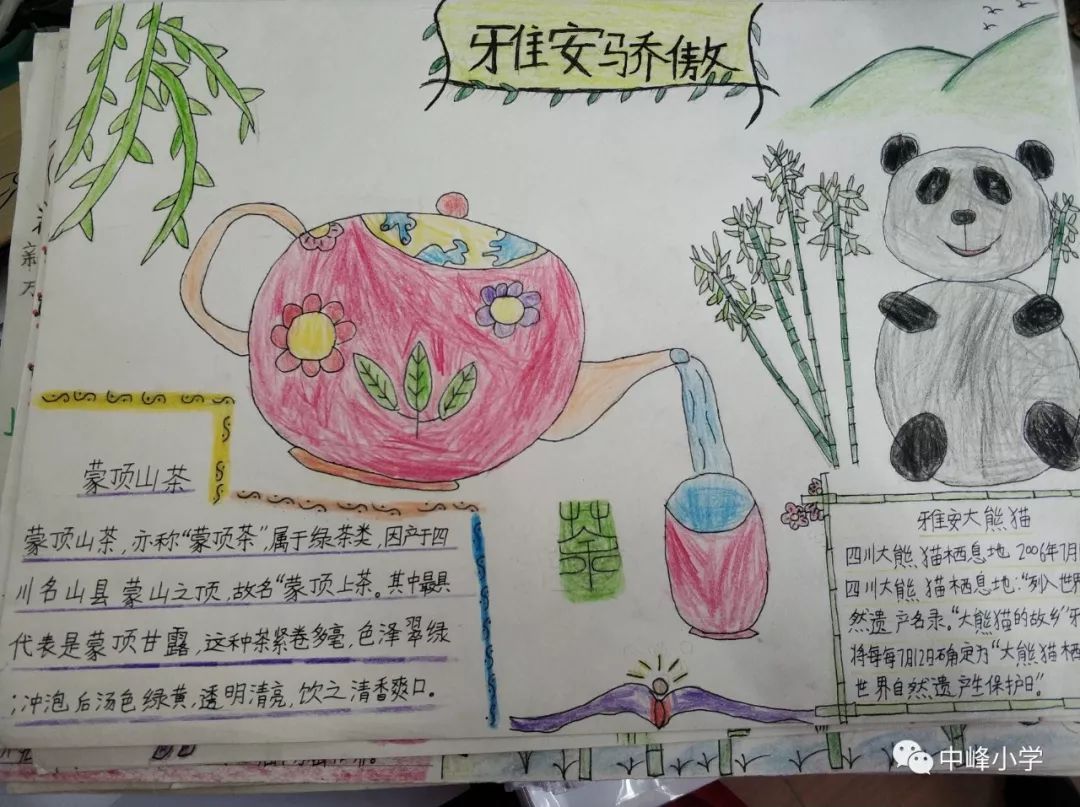 雅安骄傲
蒙顶山茶
蒙顶山茶，亦称“蒙顶茶”，属于绿茶类，因产于四
川名山县蒙山之顶，故名“蒙顶上茶。其中最具
代表是蒙顶甘露，这种茶紧卷多毫，色泽翠绿
；冲泡后汤色绿黄，透明清亮，饮之清香爽口。
茶
雅安大熊猫
四川大熊猫栖息地2006年7月
四川大熊猫栖息地：“列入世界
然遗产名录。“大熊猫的故乡”牙
将每每7月12日确定为“大熊猫栖
世界自然遗产生保护日”。
中峰小学